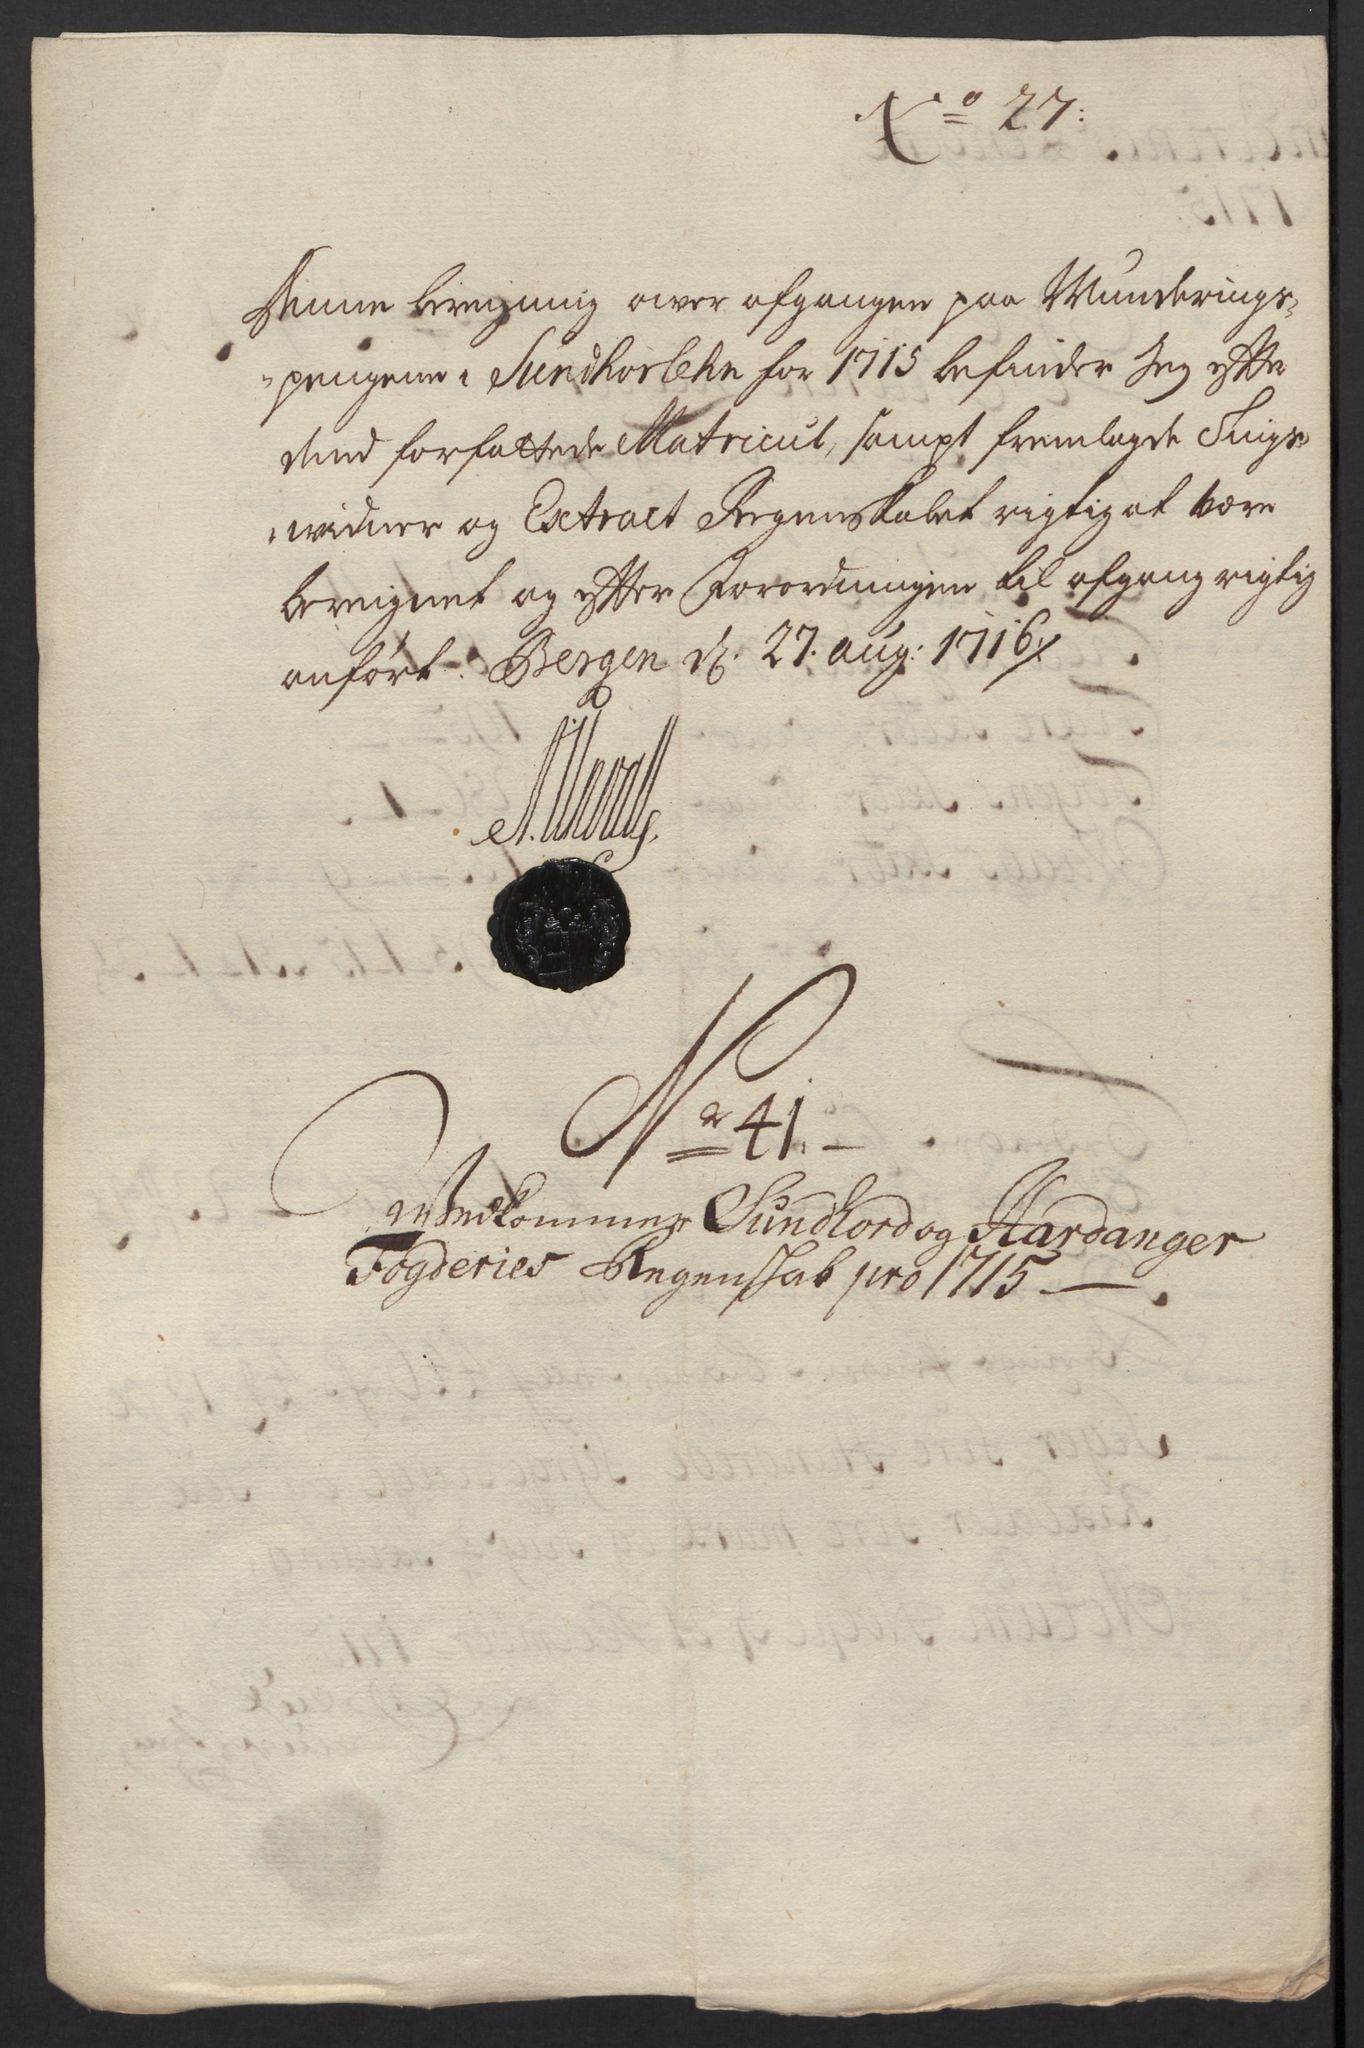 No 27:
Denne beregning over afgangen paa Munderings-
-pengene i Sundhorlehn for 1715 befinder Jeg effter
dend forfattede Matricul, sampt fremlagde Tings-
-widner og Extract Regenskabet rigtig at være
bereignet og effter Forordningen til afgang rigtig
anført. Bergen d. 27. aug: 1716
No 41.
Vedkommer Sundhord og Hardanger
Fogderies Regenskab pro 1715